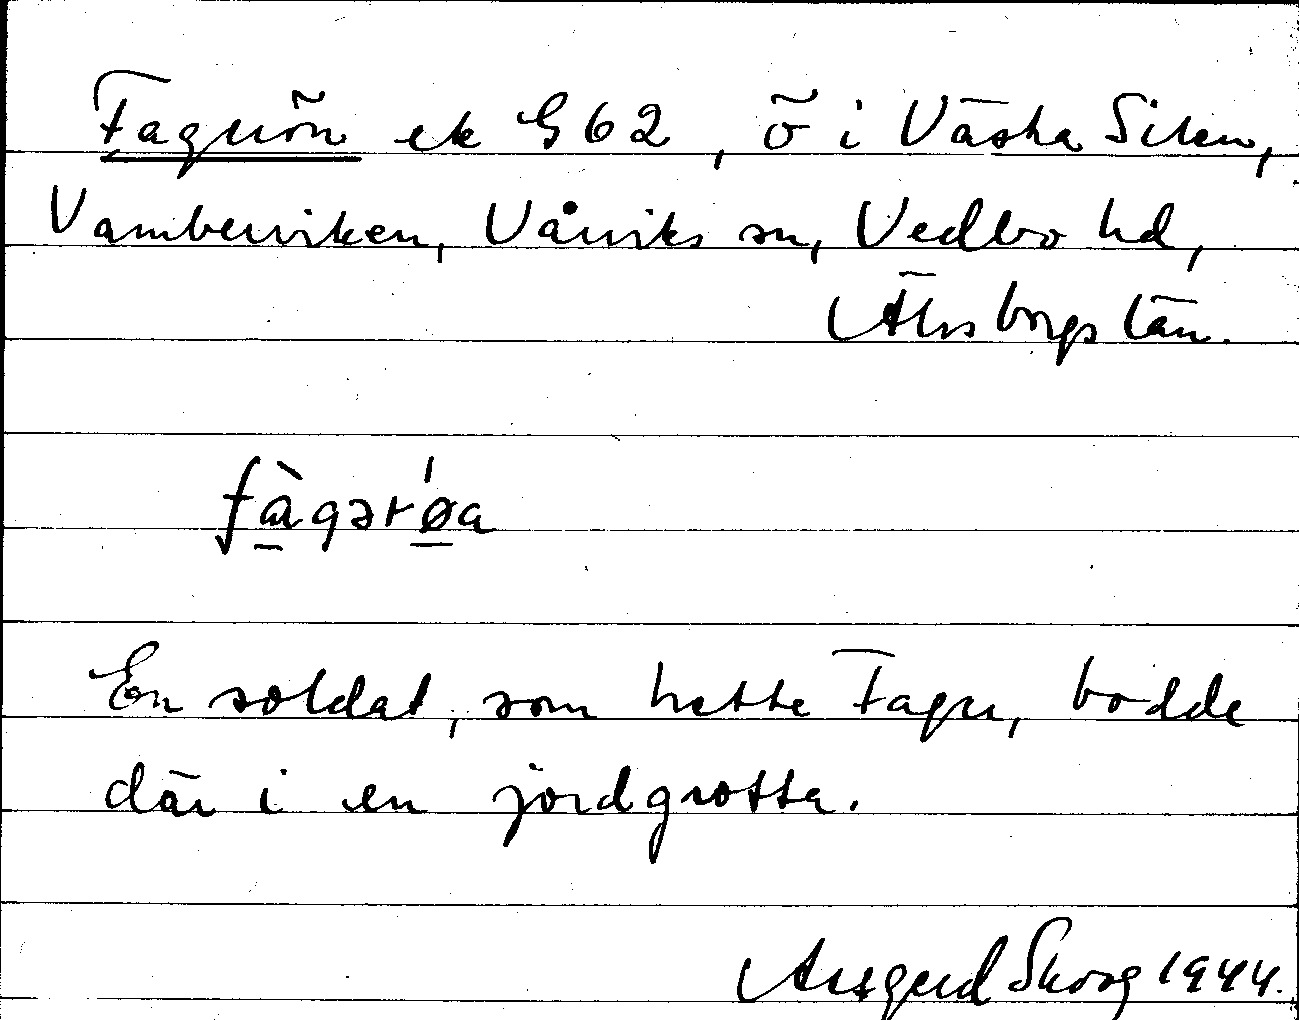 Fagrön ek G62, ö i Västra Silen,
Vamberviken, Vårviks sn, Vedbo hd,
Älvsborgs län.
fàgərǿa
En soldat, som hette Fager, bodde
där i en jordgrotta.
Assgerd Skoog 1944.